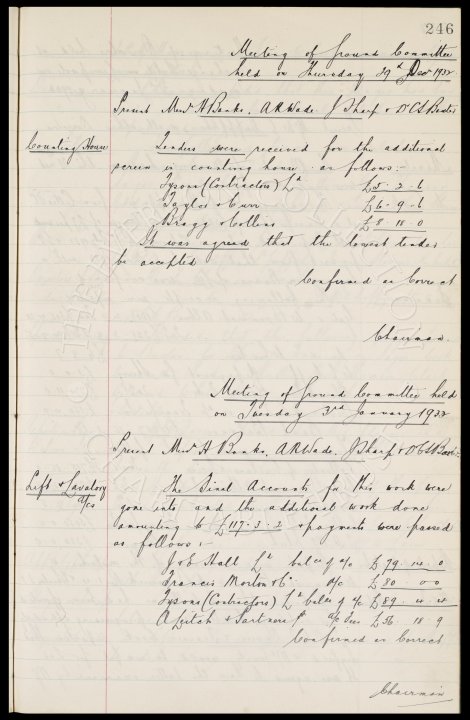 246
Meeting of Ground Committee
held on Thursday 29th Decr 1932
Present Messrs H Banks, A R Wade. J Sharp & Dr C S Baxter
Counting House
Tenders were received for the additional
screen in counting house as follows:-
Tysons (Contractors) Ld £5 - 2 - 6
Taylor & Curr £6 - 9 - 6
Bragg & Collins £8 - 10 - 0
It was agreed that the lowest tender
be accepted
Confirmed as Correct
Chairman.
Meeting of Ground Committee held
on Tuesday 3rd January 1932
Present Messrs H Banks, A R Wade, J Sharp & Dr C S Baxter
Lift & Lavatory
a/cs
The Final Accounts for this work were
gone into, and the additional work done
amounting to £117 - 3 - 2 & payments were passed
as follows :-
J & E Hall Ld balce of a/c £79 - 0
Francis Morton & Co a/c £80 - 0 0
Tysons (Contractors) Ld balce of a/c £89
A Leitch & Partners a/c fees £36 18 - 9
Confirmed as Correct
Chairman